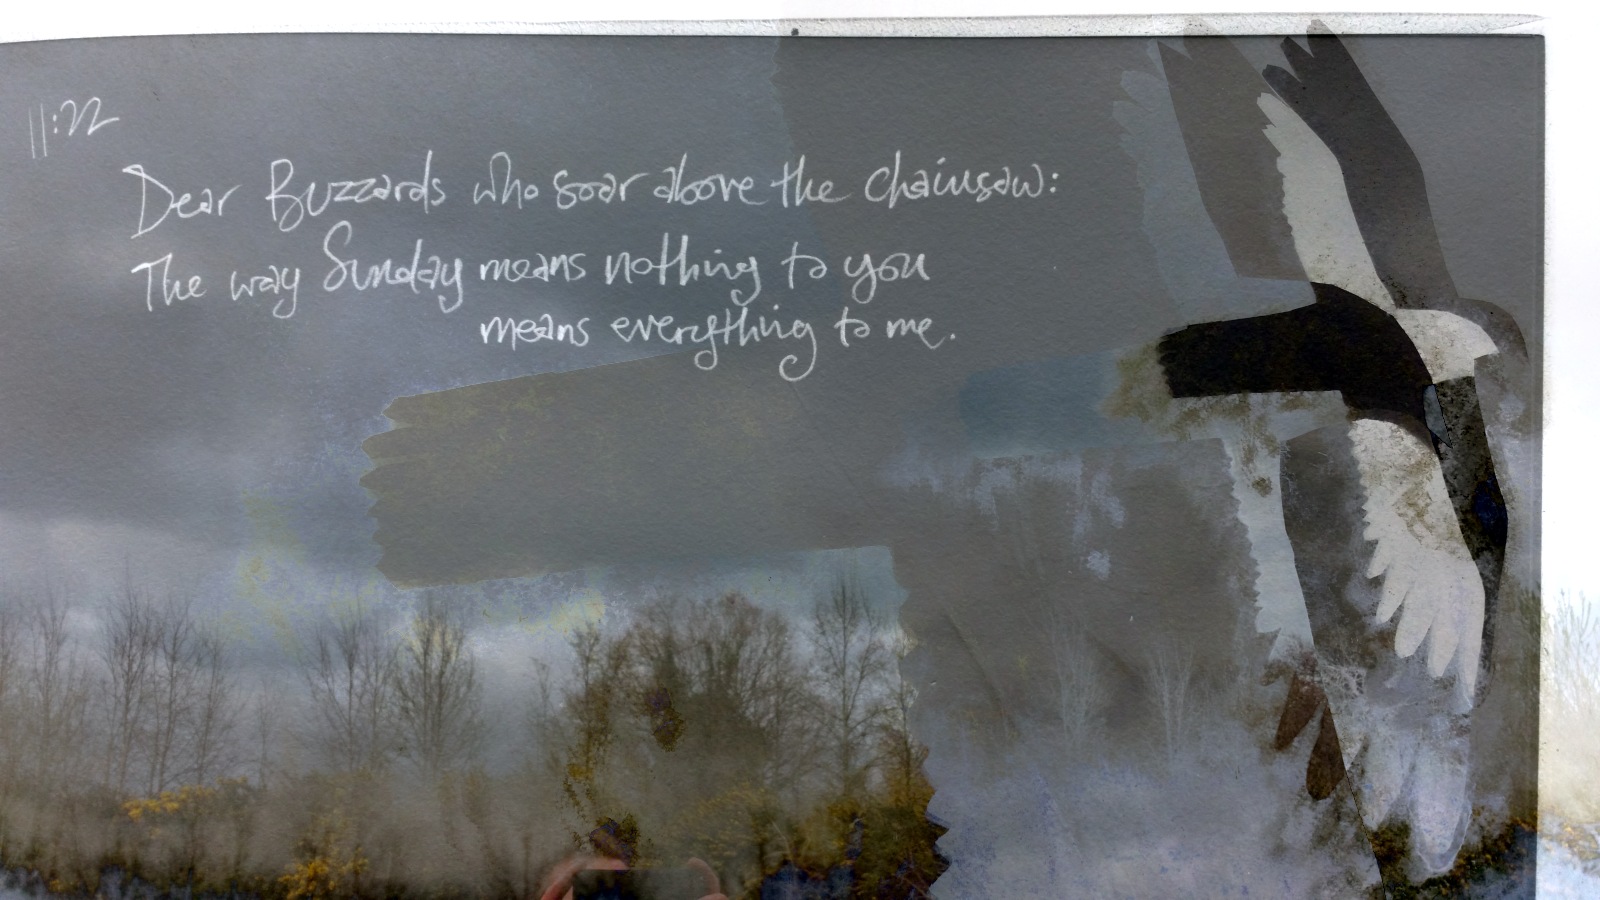 11:22
Dear Buzzards who soar above the chainsaw:
The way Sunday means nothing to you
means everything to me.